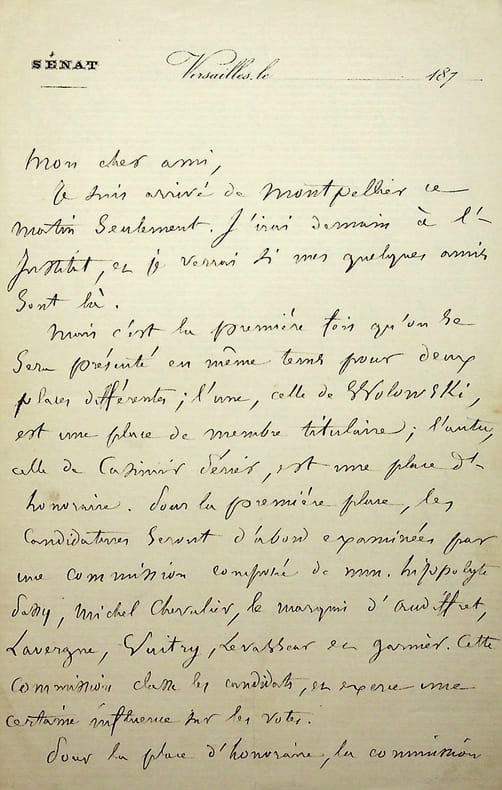 SÉNAT
Versailles, le 187
Mon cher ami,
Je suis arrivé de Montpellier ce
matin seulement. J'irai demain à l'-
Institut, et je verrai si mes quelques amis
sont là.
Mais c'est la première fois qu'on se
sera présenté en même tems pour deux
places différentes ; l'une, celle de Wolowski,
est une place de membre titulaire ; l'autre,
celle de Casimir Périer, est une place d'-
honoraire. Pour la première place, les
candidatures seront d'abord examinées par
une commission composée de mm. hippolyte
Passy, Michel Chevalier, le marquis d'Audiffret,
Lavergne, Vuitry, Levasseur et garnier. Cette
commission classe les candidats, et exerce une
certaine influence sur les votes.
Pour la place d'honoraire, la commission